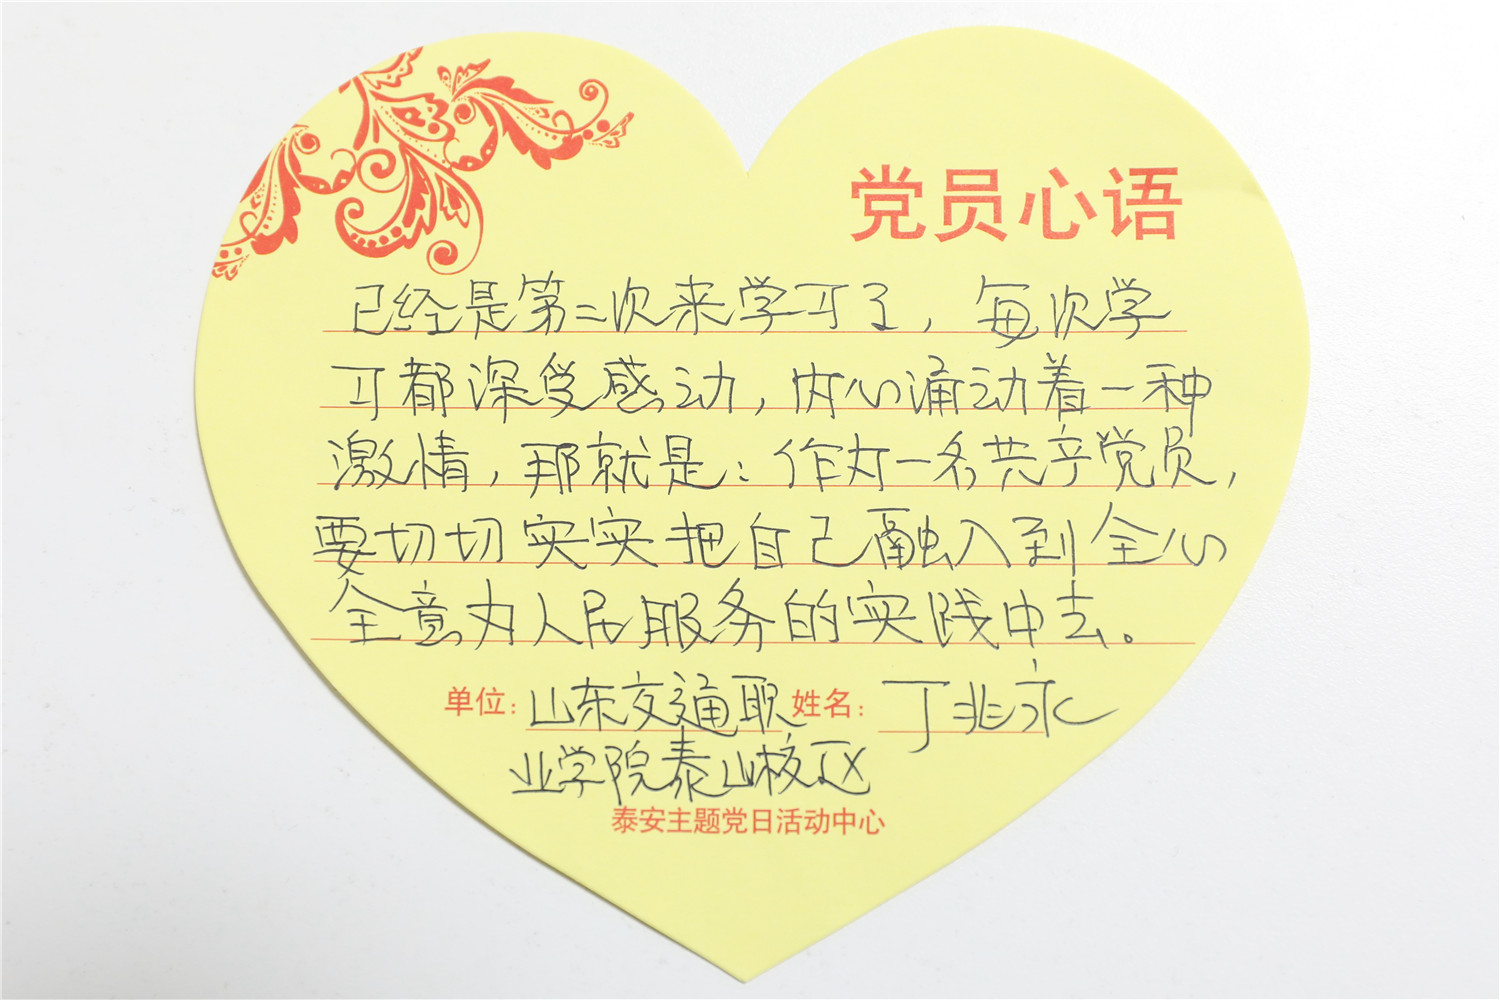 党员心语
已经是第二次来学习了，每次学
习都深受感动，内心涌动着一种
激情，那就是：作好一名共产党员，
要切切实实把自己融入到全心
全意为人民服务的实践中去。
单位：山东交通职 姓名：丁兆永
业学院泰山校区
泰安主题党日活动中心